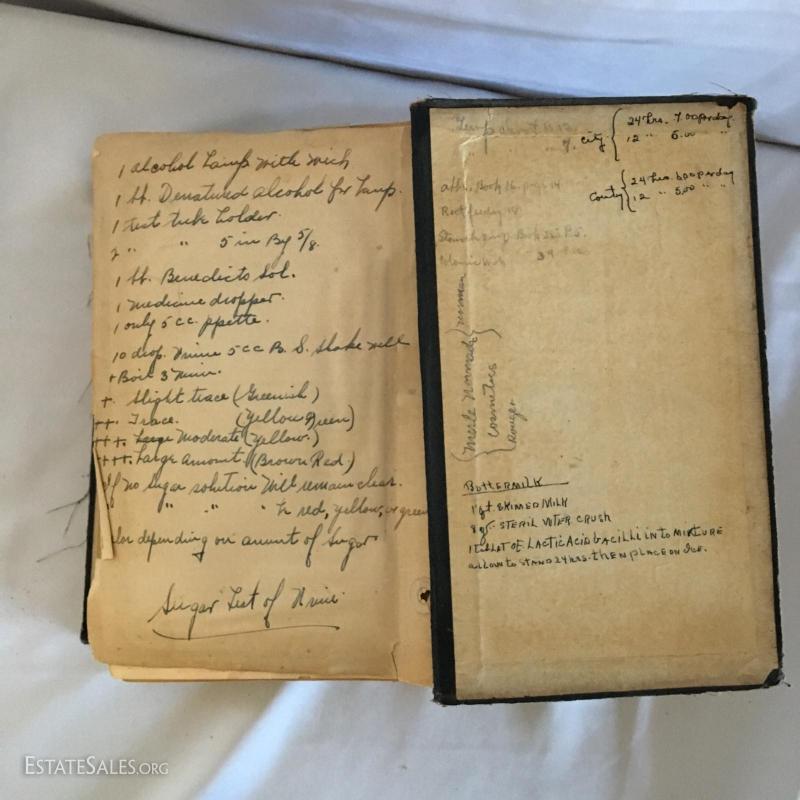 1 alcohol Lamp with wick
1 bt. Denatured alcohol for Lamp.
1 test tube holder.
2 " " 5 in By 5/8.
1 bt. Benedicts Sol.
1 medicine dropper.
1 only 5 cc. ppette.
10 drop. Urine 5 cc B. S. Shake well
+ Boil 3 min.
+. Slight trace (Greenish)
++. Trace. (Yellow Green)
+++. Large Moderate (Yellow.)
+++. Large Amount. (Brown Red.)
If no sugar solution Will remain clear.
" " " " red, yellow, or green
lor depending on amount of Sugar
Sugar Test of Urine.
City { 24 hrs. 7.00 per day
12 " 6.00 "
County { 24 hrs. 6.00 per day
12 " 5.00 " "
Book 16. page 14
Book P 5.
39
(Merle Normach { norman
Cosmetics
Rouge
Buttermilk
1 qt. SKIMED MILK
8 gr. STERIL WTER CRUSH
1 tablat OF LACTIC ACID bACILLI INTO MIXTURE
allow to STAND 24 HRS. THEN PLACE ON ICE.
ESTATESALES.ORG